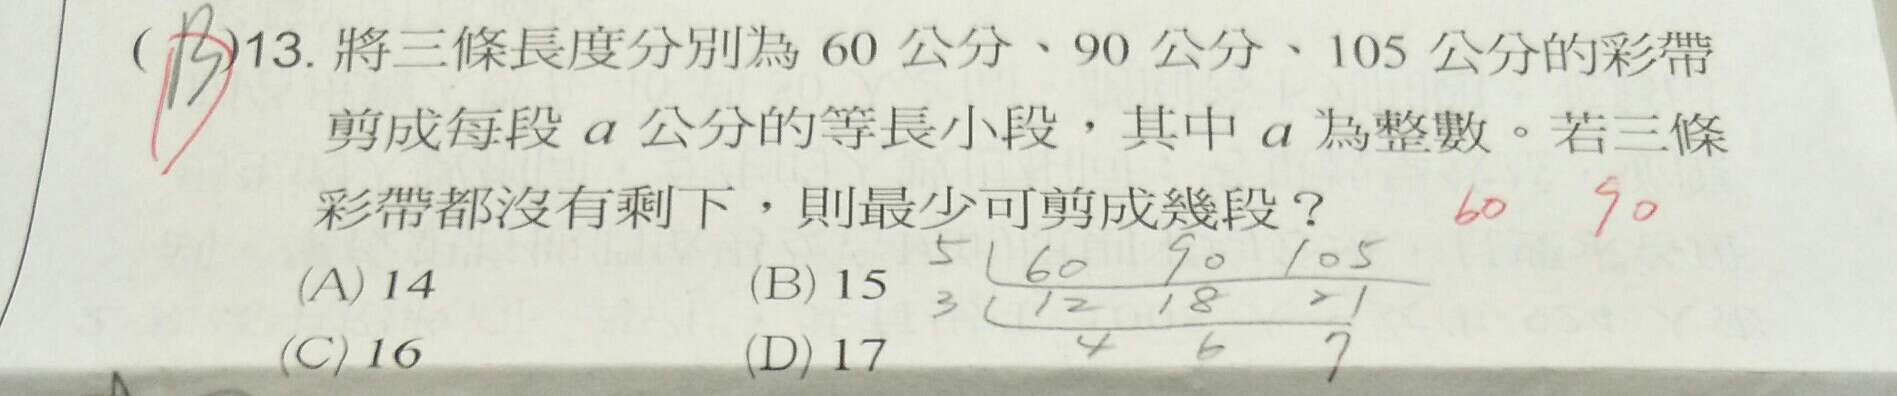 ( B )13. 將三條長度分別為 60 公分、90 公分、105 公分的彩帶
剪成每段 a 公分的等長小段，其中 a 為整數。若三條
彩帶都沒有剩下，則最少可剪成幾段？
60 90
(A) 14 (B) 15
(C) 16 (D) 17
5 60 90 105
3 12 18 21
4 6 7